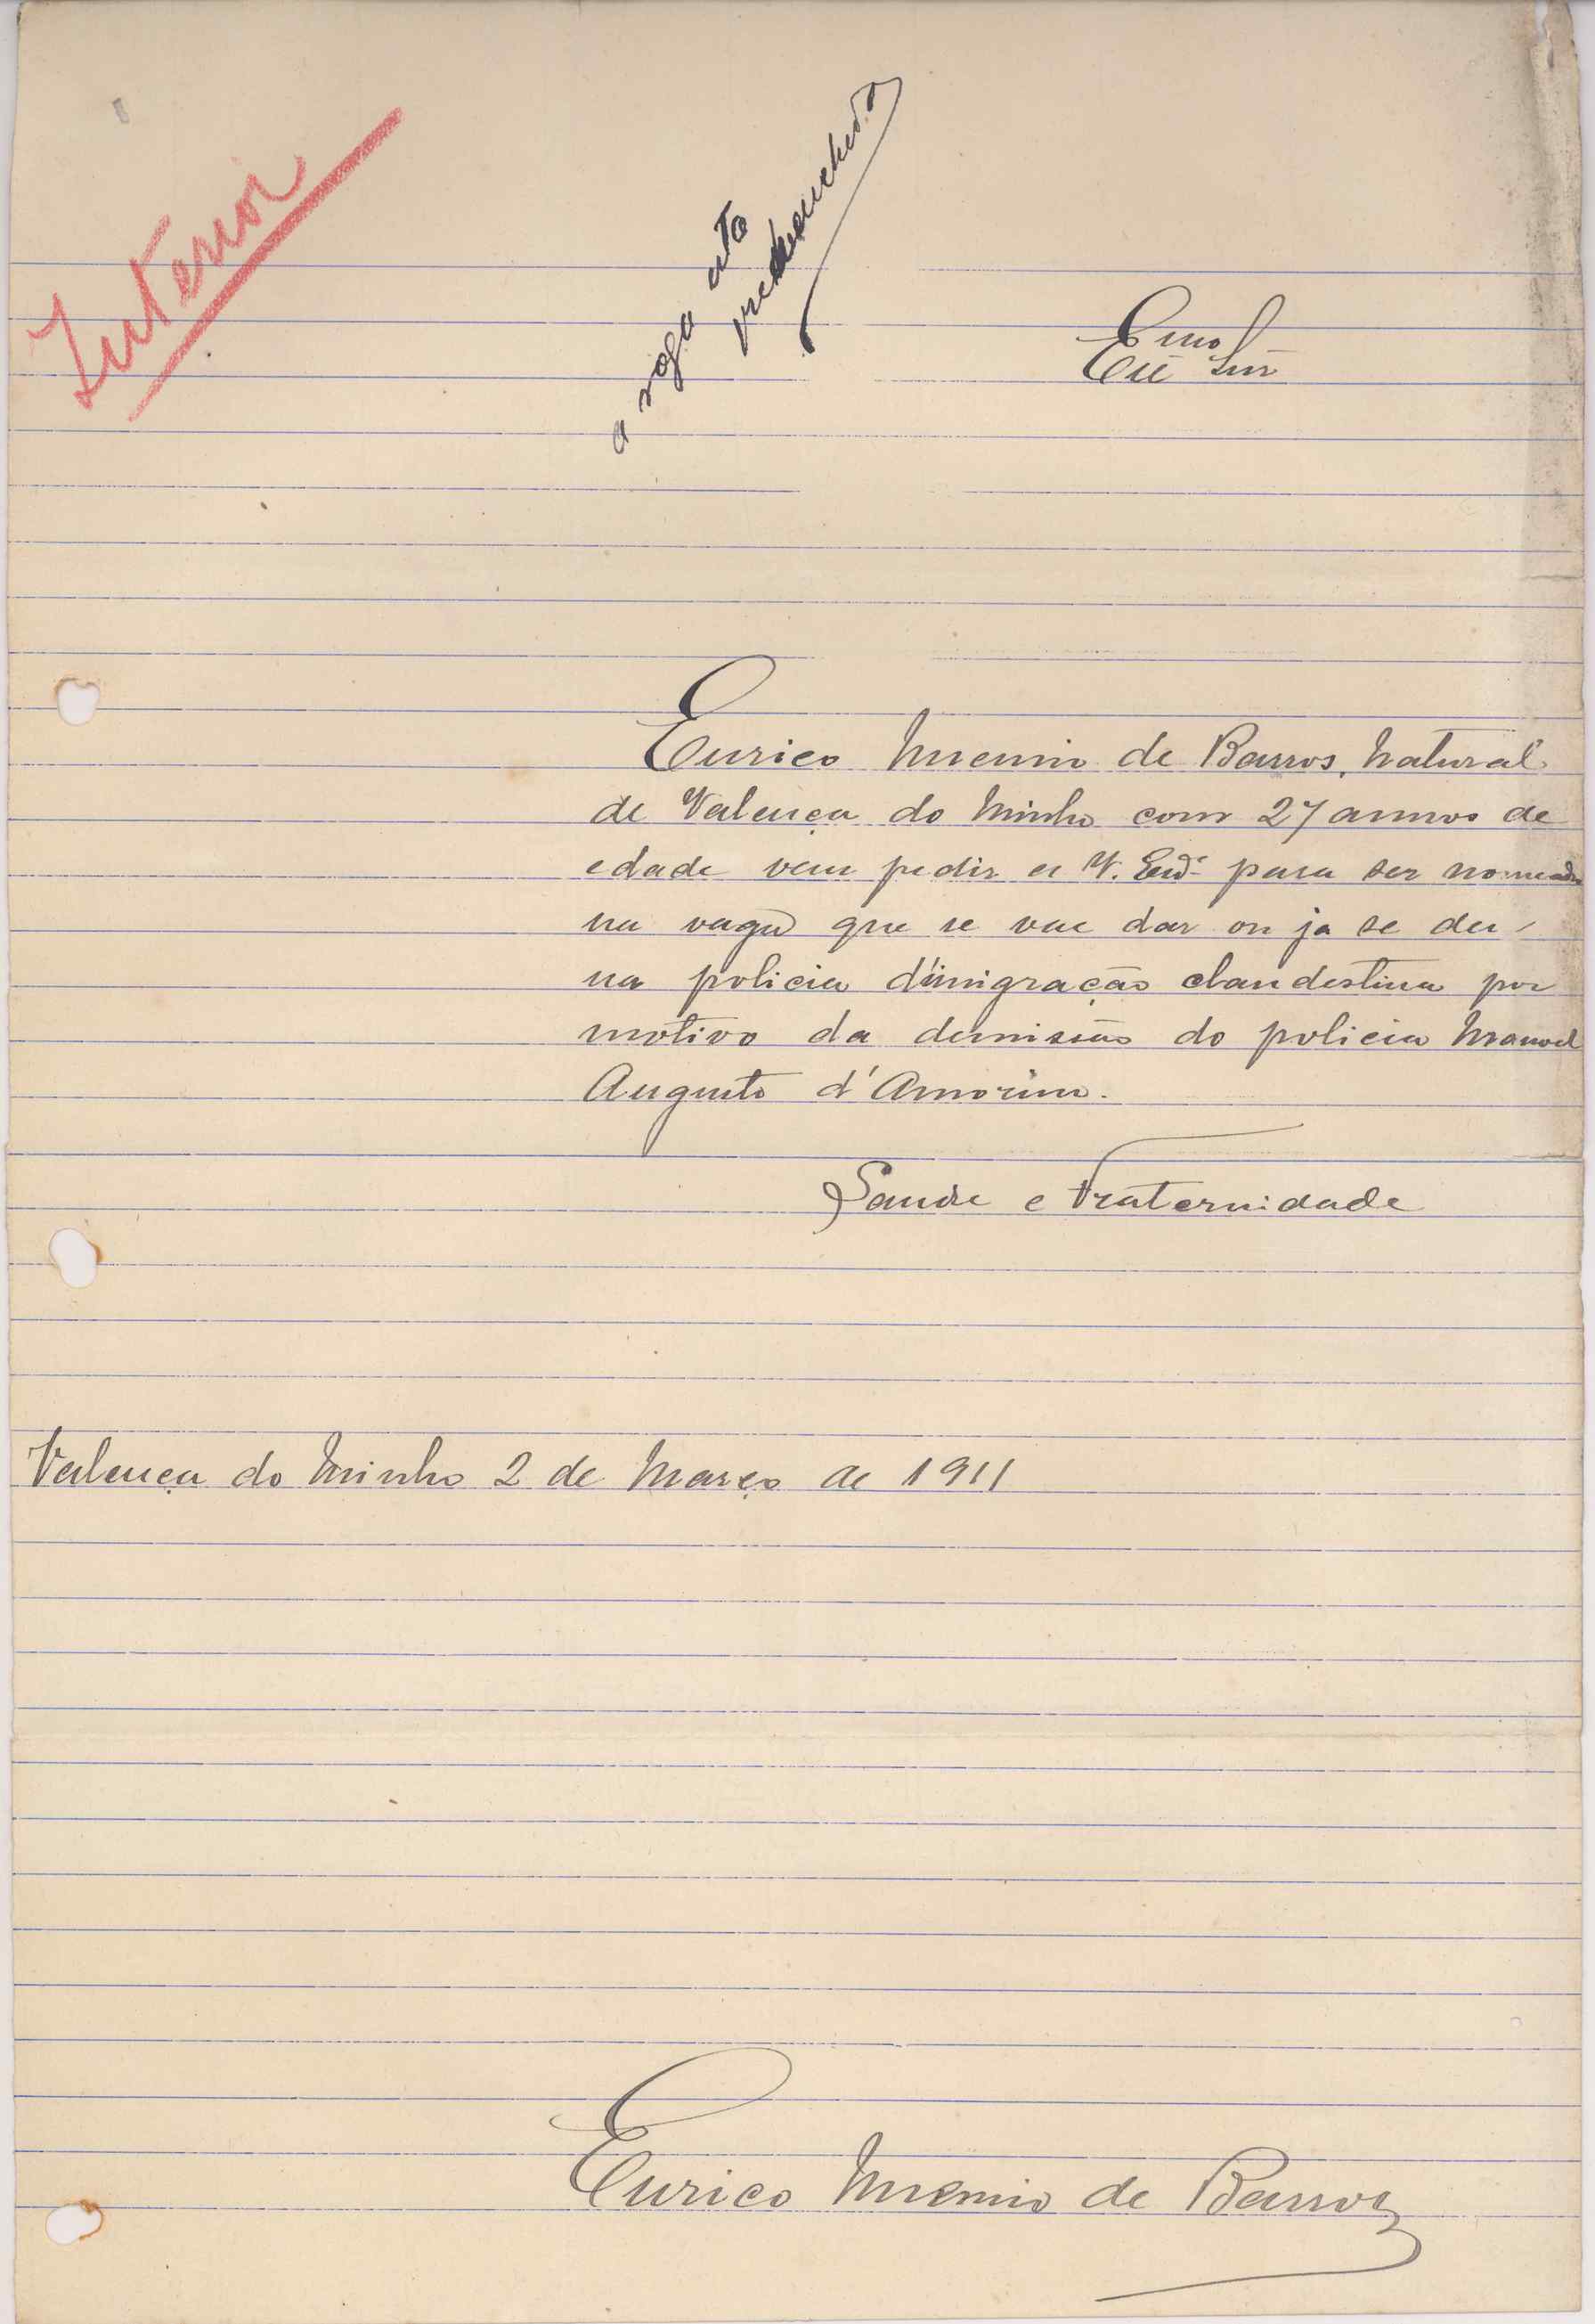 Interior
a vaga está
preenchida
Exmo
Snr
Eurico de Barros, Natural
de Valença do Minho com 27 annos de
edade vem pedir a V. Excia para ser nomeado
na vaga que se vae dar ou ja se deu
na policia d'imigração clandestina por
motivo da demissão do policia Manoel
Augusto d'Amorim.
Saude e Fraternidade
Valença do Minho 2 de Março de 1911
Eurico de Barros